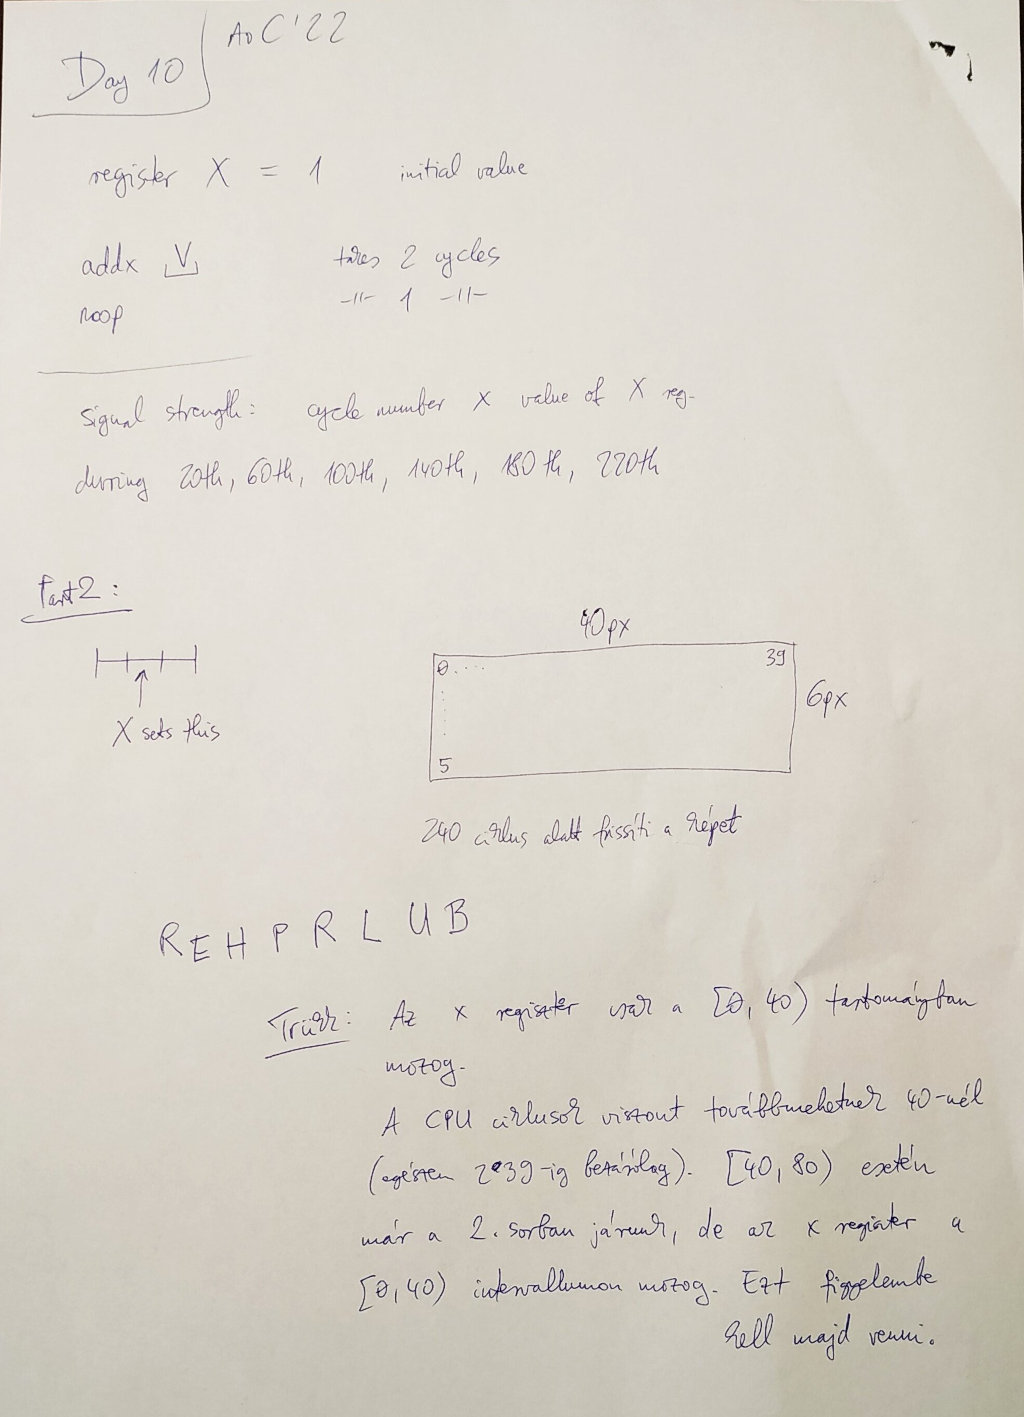 AoC'22
Day 10
register X = 1 initial value
addx V takes 2 cycles
noop -11- 1 -11-
Signal strength: cycle number x value of X reg.
during 20th, 60th, 100th, 140th, 180th, 220th
Part2:
40px
0.... 39
6px
X sets this
5
240 ciklus alatt frissíti a képet
R E H P R L U B
Trükk: Az x regiszter csak a [0, 40) tartományban
mozog.
A CPU ciklusok viszont továbbmehetnek 40-nél
(egészen 239-ig bezárólag). [40, 80) esetén
már a 2. sorban járunk, de az x register a
[0, 40) intervallumon mozog. Ezt figyelembe
kell majd venni.